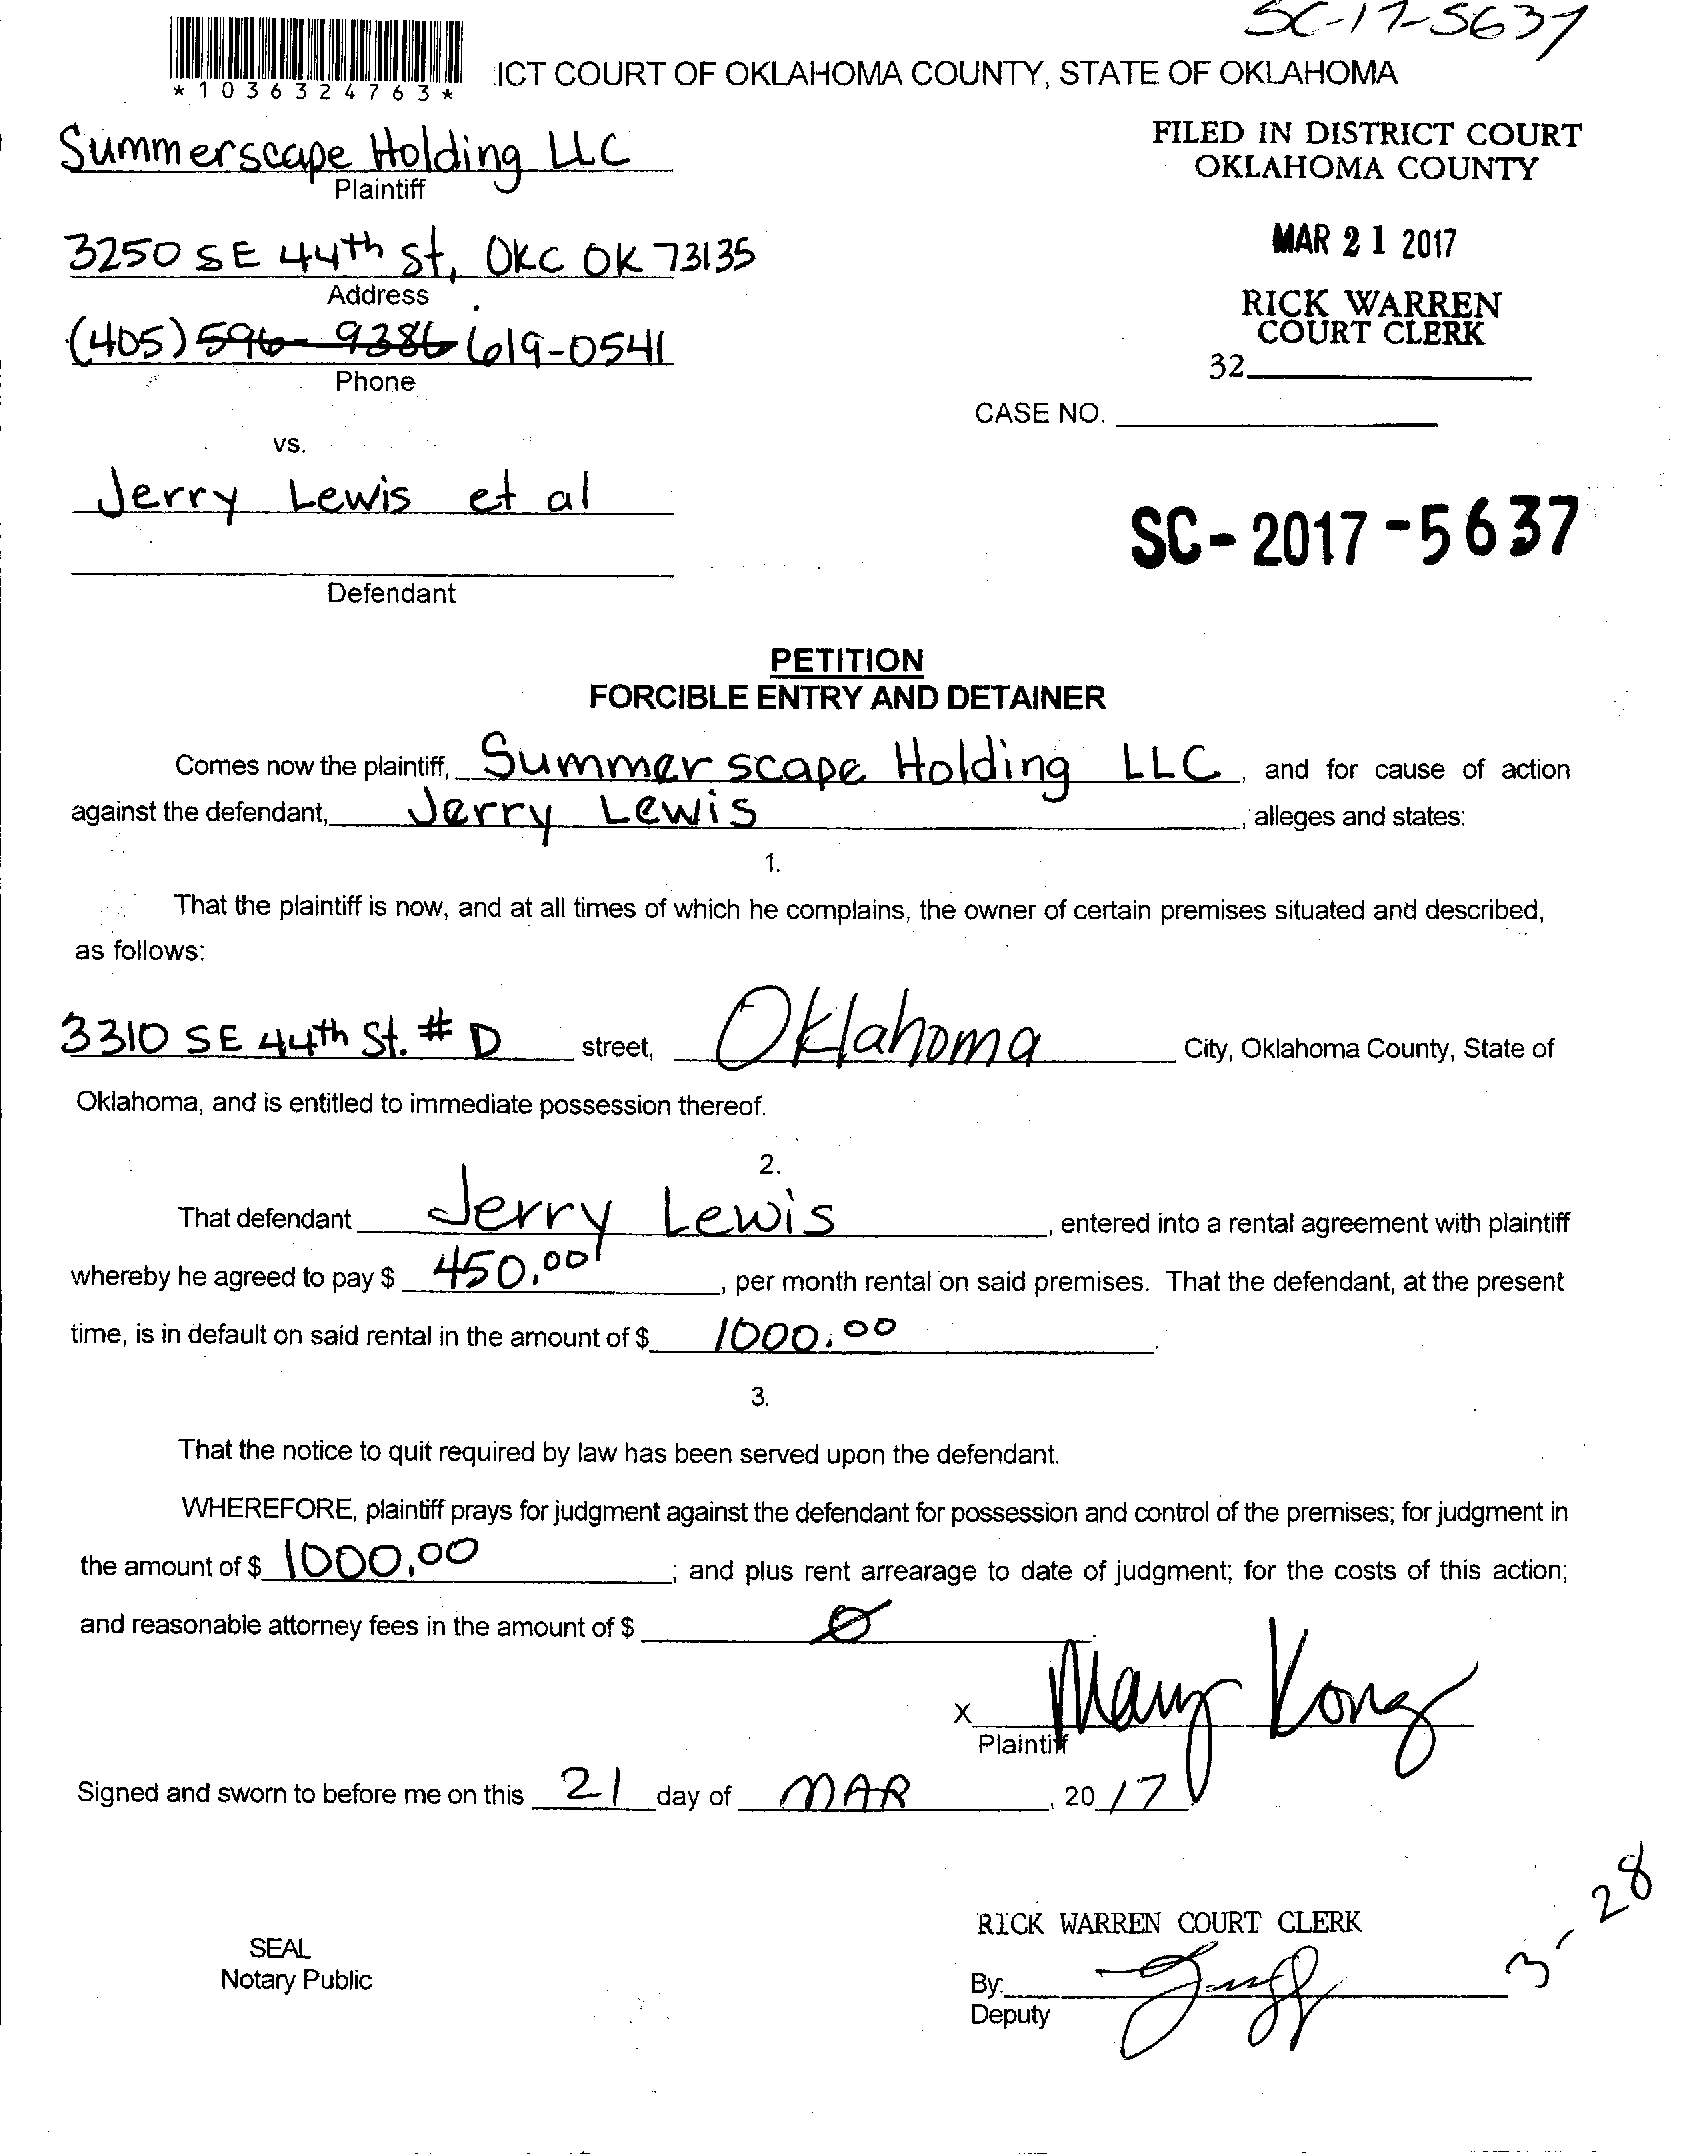 SC-17-5637
*1036324763*
ICT COURT OF OKLAHOMA COUNTY, STATE OF OKLAHOMA
Summerscape Holding LLC
Plaintiff
FILED IN DISTRICT COURT
OKLAHOMA COUNTY
3250 SE 44th St, OKC OK 73135
Address
MAR 21 2017
(405) 596-9386 619-0541
Phone
RICK WARREN
COURT CLERK
32
CASE NO.
vs.
Jerry Lewis et al
Defendant
SC-2017-5637
PETITION
FORCIBLE ENTRY AND DETAINER
Comes now the plaintiff, Summerscape Holding LLC, and for cause of action
against the defendant, Jerry Lewis, alleges and states:
1.
That the plaintiff is now, and at all times of which he complains, the owner of certain premises situated and described,
as follows:
3310 SE 44th St. # D street, Oklahoma City, Oklahoma County, State of
Oklahoma, and is entitled to immediate possession thereof.
2.
That defendant Jerry Lewis, entered into a rental agreement with plaintiff
whereby he agreed to pay $ 450.00, per month rental on said premises. That the defendant, at the present
time, is in default on said rental in the amount of $ 1000.00.
3.
That the notice to quit required by law has been served upon the defendant.
WHEREFORE, plaintiff prays for judgment against the defendant for possession and control of the premises; for judgment in
the amount of $ 1000.00; and plus rent arrearage to date of judgment; for the costs of this action;
and reasonable attorney fees in the amount of $ Ø
X Mary Kong
Plaintiff
Signed and sworn to before me on this 21 day of MAR, 2017
3-28
RICK WARREN COURT CLERK
SEAL
Notary Public
By:
Deputy